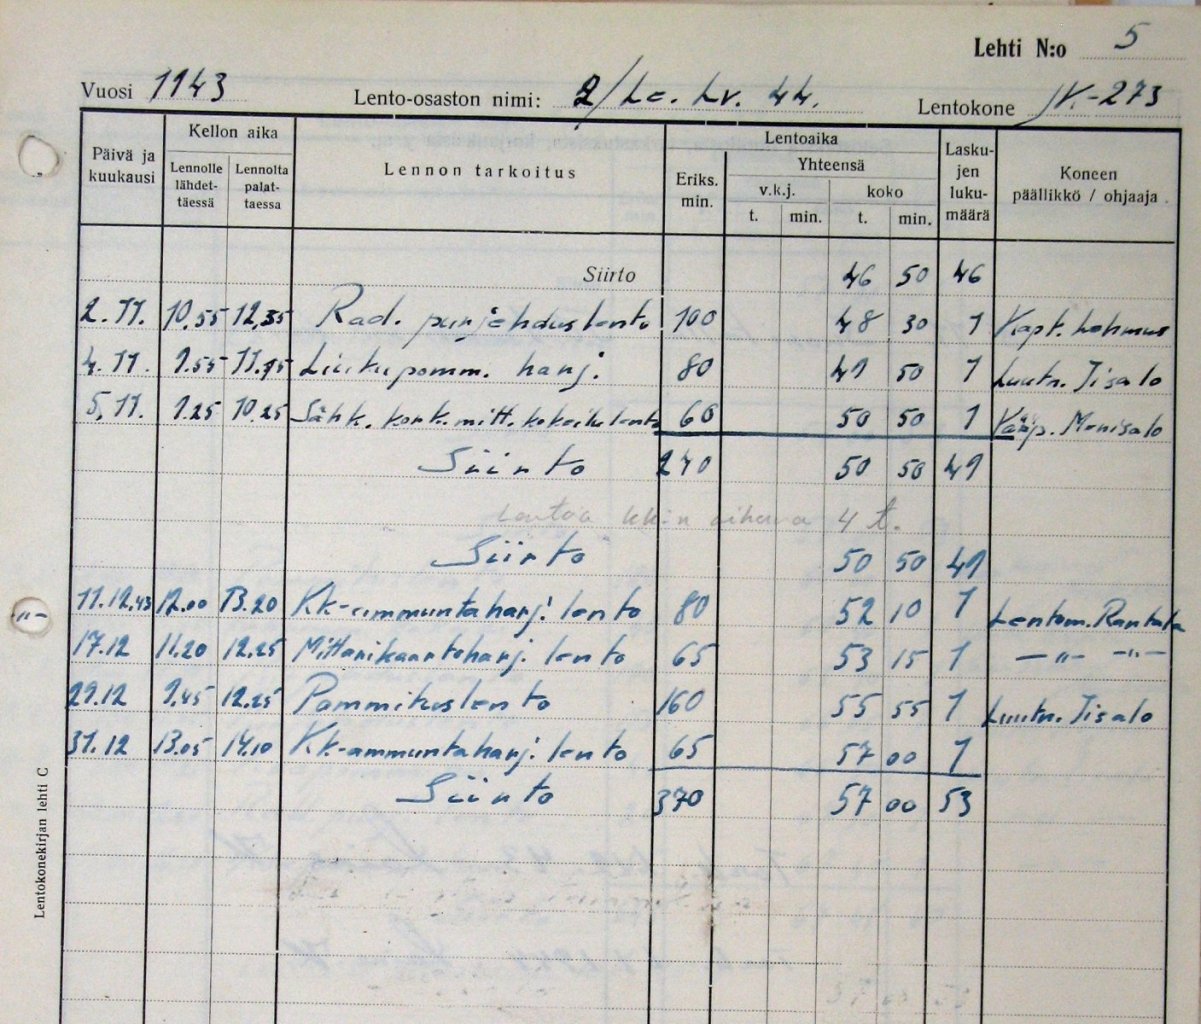 Lehti N:o 5
Vuosi 1943 Lento-osaston nimi: 2/Le. Lv. 44. Lentokone JK.-273
Päivä ja kuukausi Kellon aika Lennon tarkoitus Lentoaika Laskujen lukumäärä Koneen päällikkö / ohjaaja
Lennolle lähdettäessä Lennolta palattaessa Eriks. min. Yhteensä
v.k.j. koko
t. min. t. min.
Siirto 46 50 46
2.11. 10.55 12.35 Rad. purjehduslento 100 48 30 1 Kapt. Lehmus
4.11. 9.55 Liukupomm. harj. 80 49 50 1 Luutn. Iisalo
5.11. 9.25 10.25 Sähk. kork. mitt. kokeilulento 60 50 50 1 Vääp. Monisalo
Siirto 240 50 50 49
Lentoa 4 t.
Siirto 50 50 49
11.12.43 12.00 13.20 Kk-ammuntaharj. lento 80 52 10 1 Lentom. Rantala
17.12 11.20 12.25 Mittarikaartoharj. lento 65 53 15 1 —"— —"—
29.12 9.45 12.25 Pommituslento 160 55 55 1 Luutn. Iisalo
31.12 13.05 14.10 Kk-ammuntaharj. lento 65 57 00 1
Siirto 370 57 00 53
-"-
Lentokonekirjan lehti C